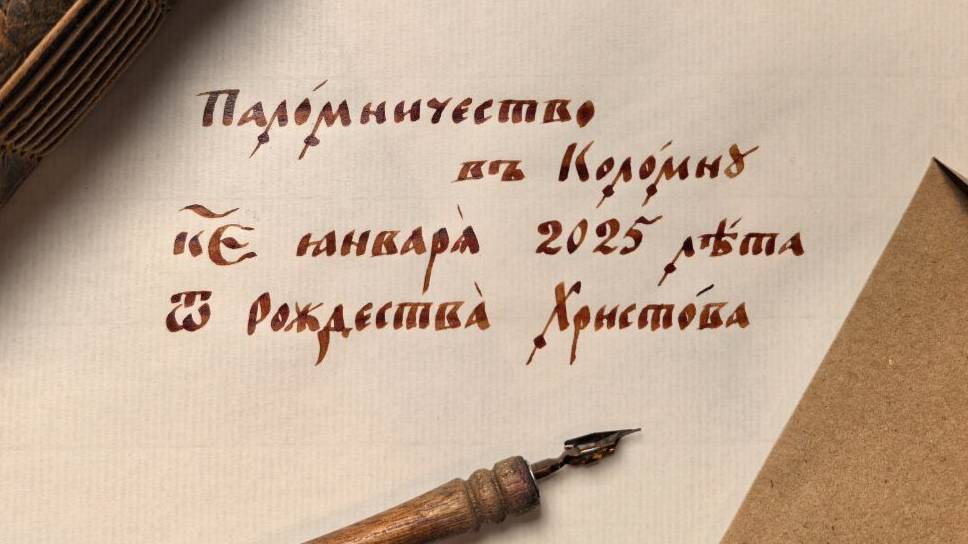 Пало́мничество
въ Коло́мнꙋ
к҃Є января̀ 2025 лѣ́та
Ѿ Рождества̀ Христо́ва